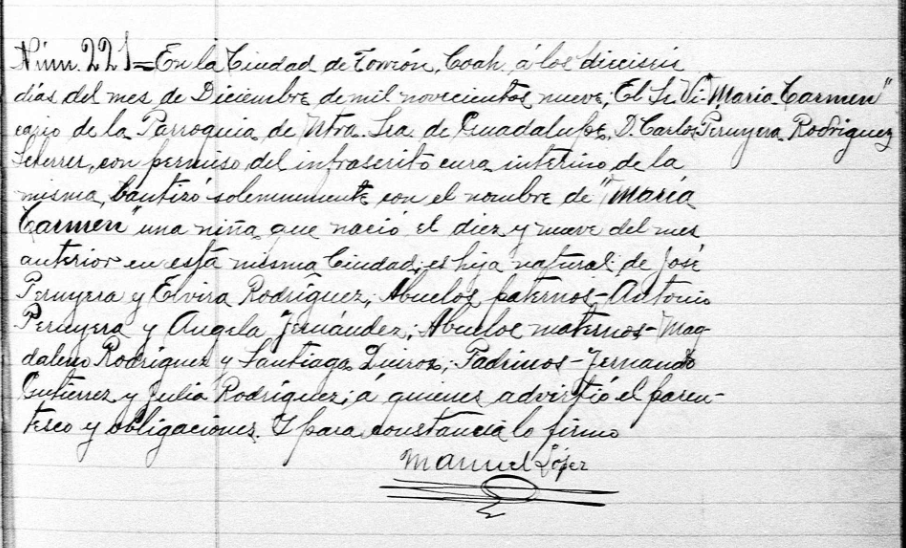 Núm. 221=En la Ciudad de Torreón, Coah. á los dieciseis
días del mes de Diciembre de mil novecientos nueve, El Sr. Vi-
"María Carmen"
Peruyera Rodríguez
cario de la Parroquia de Ntra. Sra. de Guadalupe, D. Carlos
con permiso del infrascrito cura interino de la
misma, bautizó solemnemente con el nombre de "María
Carmen" una niña que nació el diez y nueve del mes
anterior en esta misma Ciudad; es hija natural de José
Peruyera y Elvira Rodríguez; Abuelos paternos-Antonio
Peruyera y Angela Fernández; Abuelos maternos-Mag-
dalena Rodríguez y Santiago Quiroz; Padrinos-Fernando
Gutiérrez y Julia Rodríguez; á quienes advirtió el paren-
tesco y obligaciones. Y para constancia lo firmo
Manuel López